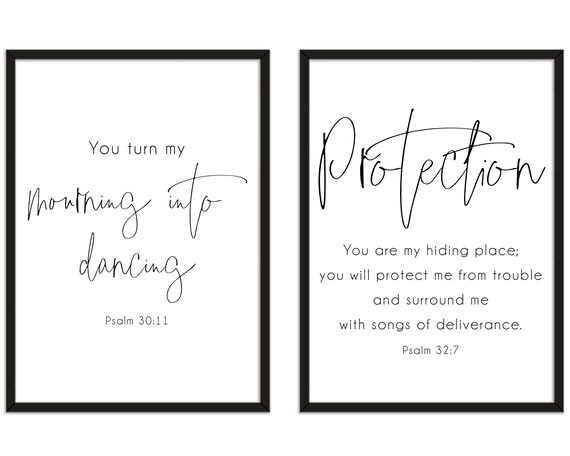 You turn my
mourning into
dancing
Psalm 30:11
Protection
You are my hiding place;
you will protect me from trouble
and surround me
with songs of deliverance.
Psalm 32:7